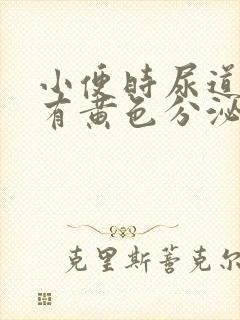 小便时尿道
有黄色分泌
克里斯蒂克尔